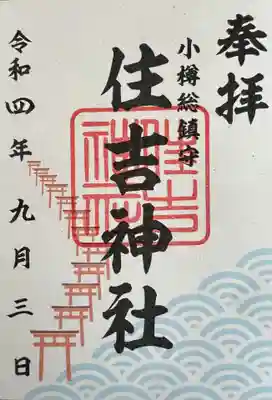 奉拝
小樽総鎮守
住吉神社
住吉神社
令和四年九月三日